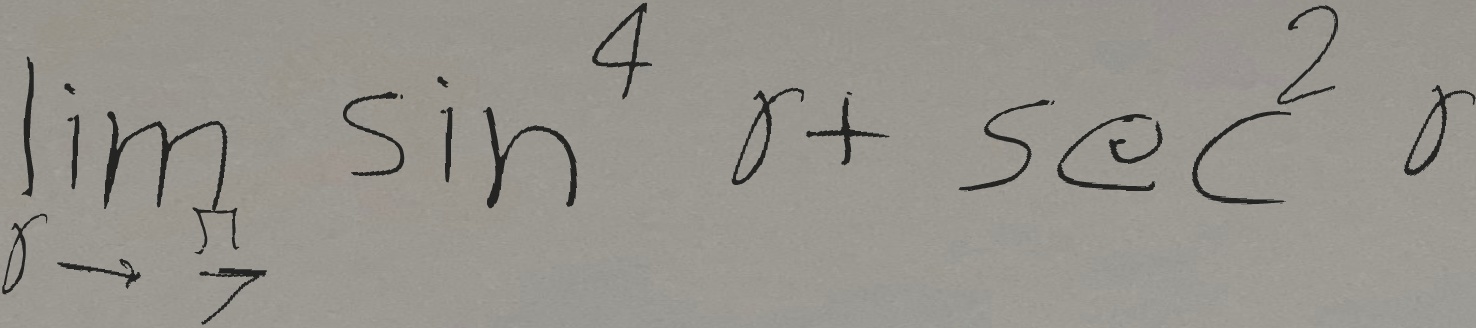 \lim_{\gamma \to \frac{\pi}{7}} \sin^4 \gamma + \sec^2 \gamma